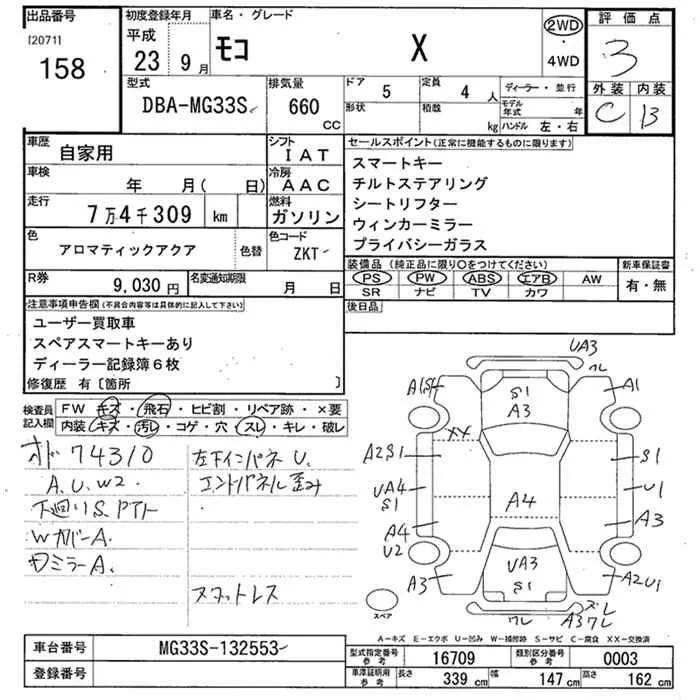 出品番号
[2071]
158
初度登録年月
平成
23 9 月
車名・グレード
モコ X
2WD
・
4WD
評価点
3
外装 内装
C B
型式
DBA-MG33S
排気量
660
CC
ドア 5
形状
定員 4 人
積載 kg
ディーラー・並行
モデル年式 年
ハンドル 左・右
車歴 自家用
シフト IAT
車検 年 月( 日)
冷房 AAC
走行 7万4千309 km
燃料 ガソリン
色 アロマティックアクア 色替
色コード ZKT
R券 9,030 円
名変通知期限 月 日
セールスポイント(正常に機能するものに限ります)
スマートキー
チルトステアリング
シートリフター
ウィンカーミラー
プライバシーガラス
装備品(純正品に限り○をつけてください)
PS PW ABS エアB AW
SR ナビ TV カワ
新車保証書
有・無
後日品
注意事項申告欄(不具合内容等は具体的に記入して下さい)
ユーザー買取車
スペアスマートキーあり
ディーラー記録簿6枚
修復歴 有〔箇所 〕
検査員記入欄
FW キズ・飛石・ヒビ割・リペア跡・×要
内装・キズ・汚レ・コゲ・穴・スレ・キレ・破レ
74310
A.U.W2
下廻りS.
WカバーA.
ミラーA.
左下インパネU.
エンドパネル歪み
UA3
S1
A3
A1
XX
A2S1
UA4
S1
A4
U2
A3
A4
S1
U1
A3
UA3
S1
A2U1
スペア
A-キズ E-エクボ U-凹み W-補修跡 S-サビ C-腐食 XX-交換済
車台番号 MG33S-132553
登録番号
型式指定番号参考 16709
類別区分番号参考 0003
車庫証明用参考 長さ 339 cm 幅 147 cm 高さ 162 cm